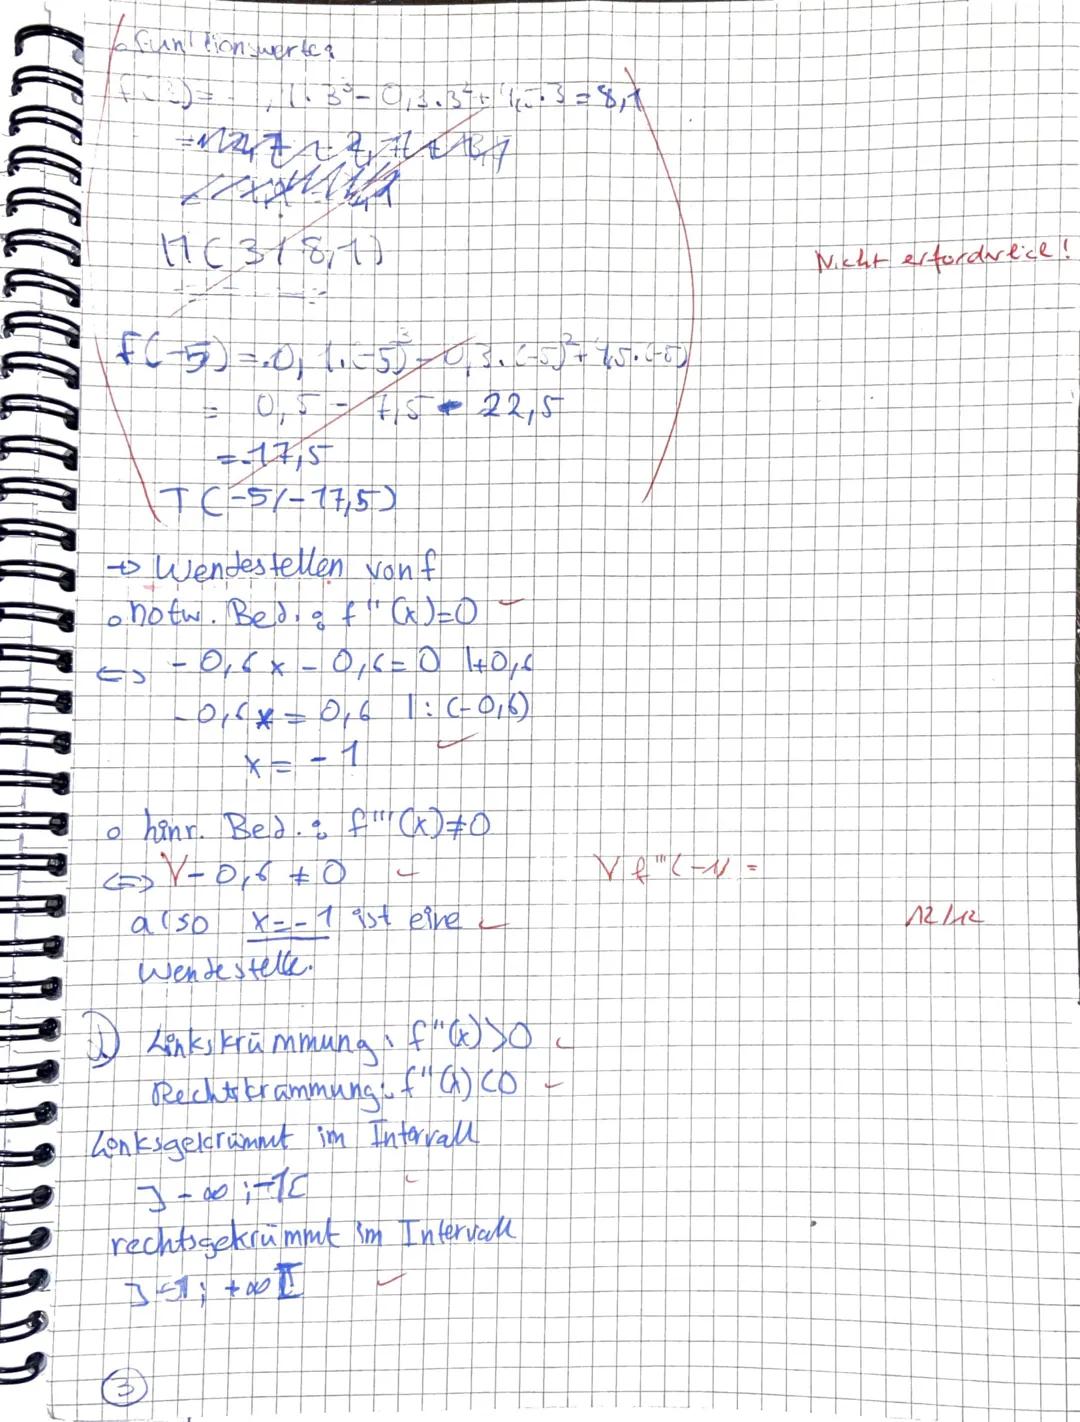 Funktionswerte:
f(3)=-0,1·3³-0,3·3²+4,5·3=8,1
H(3/8,1)
Nicht erforderlich!
f(-5)=-0,1·(-5)³-0,3·(-5)²+4,5·(-5)
= 0,5 - 7,5 - 22,5
=-17,5
T(-5/-17,5)
→ Wendestellen von f
o notw. Bed.: f''(x)=0
<=> -0,6x - 0,6=0 |+0,6
-0,6x = 0,6 |:(-0,6)
x = -1
o hinr. Bed.: f'''(x)≠0
<=> V-0,6 ≠ 0 V f'''(-1) =
also x=-1 ist eine 12/12
Wendestelle.
d) Linkskrümmung: f''(x)>0
Rechtskrümmung: f''(x)<0
Linksgekrümmt im Intervall
]-∞;-1[
rechtsgekrümmt im Intervall
]-1; +∞[
3